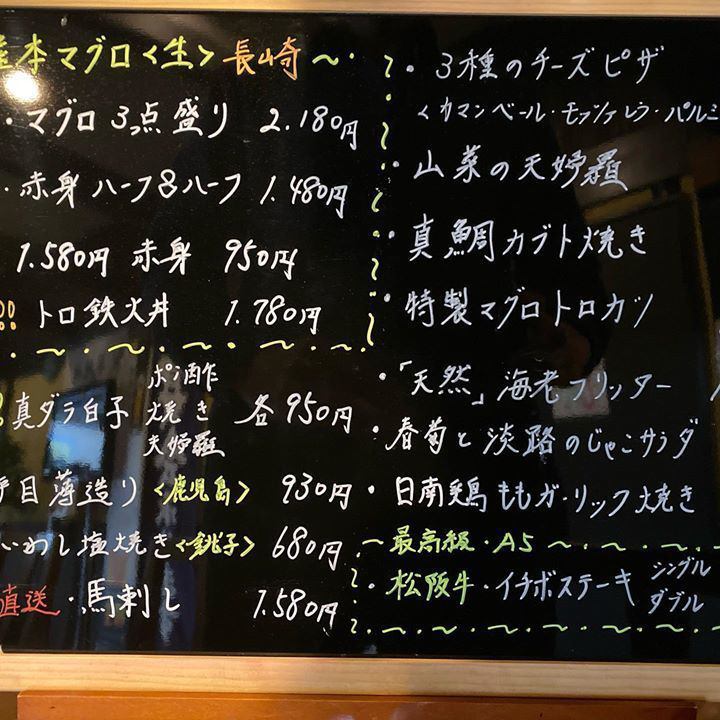 本マグロ<生> 長崎
・マグロ 3点盛り 2.180円
・赤身 ハーフ&ハーフ 1.480円
1.580円 赤身 950円
!! トロ鉄火丼 1.780円
真ダラ白子 ポン酢 焼き 天婦羅 各950円
目薄造り <鹿児島> 930円
いわし塩焼き <銚子> 680円
直送・馬刺し 1.580円
・3種のチーズピザ
<カマンベール・モッツァレラ・パルミ
・山菜の天婦羅
・真鯛カブト焼き
・特製マグロトロカツ
・「天然」海老フリッター
・春菊と淡路のじゃこサラダ
・日南鶏ももガーリック焼き
最高級・A5
・松阪牛・イチボステーキ シングル ダブル